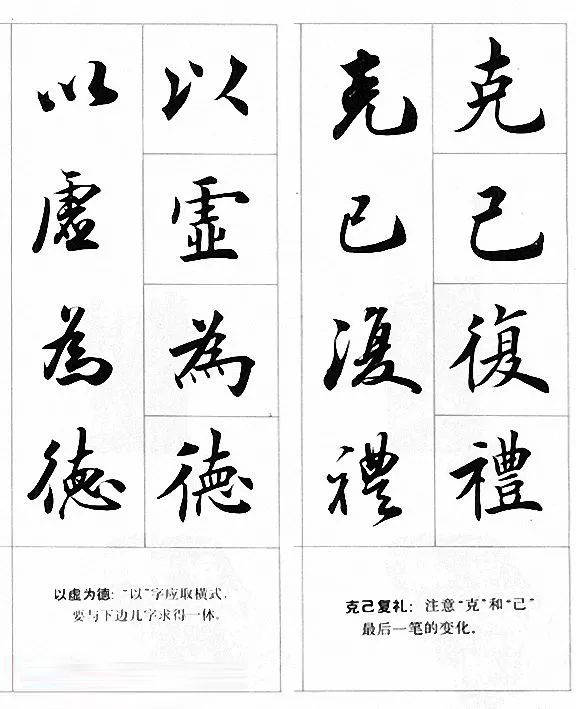 克己復禮
克己復禮
克己复礼：注意“克”和“己”
最后一笔的变化。
以虛為德
以虛為德
以虚为德：“以”字应取横式，
要与下边几字求得一体。